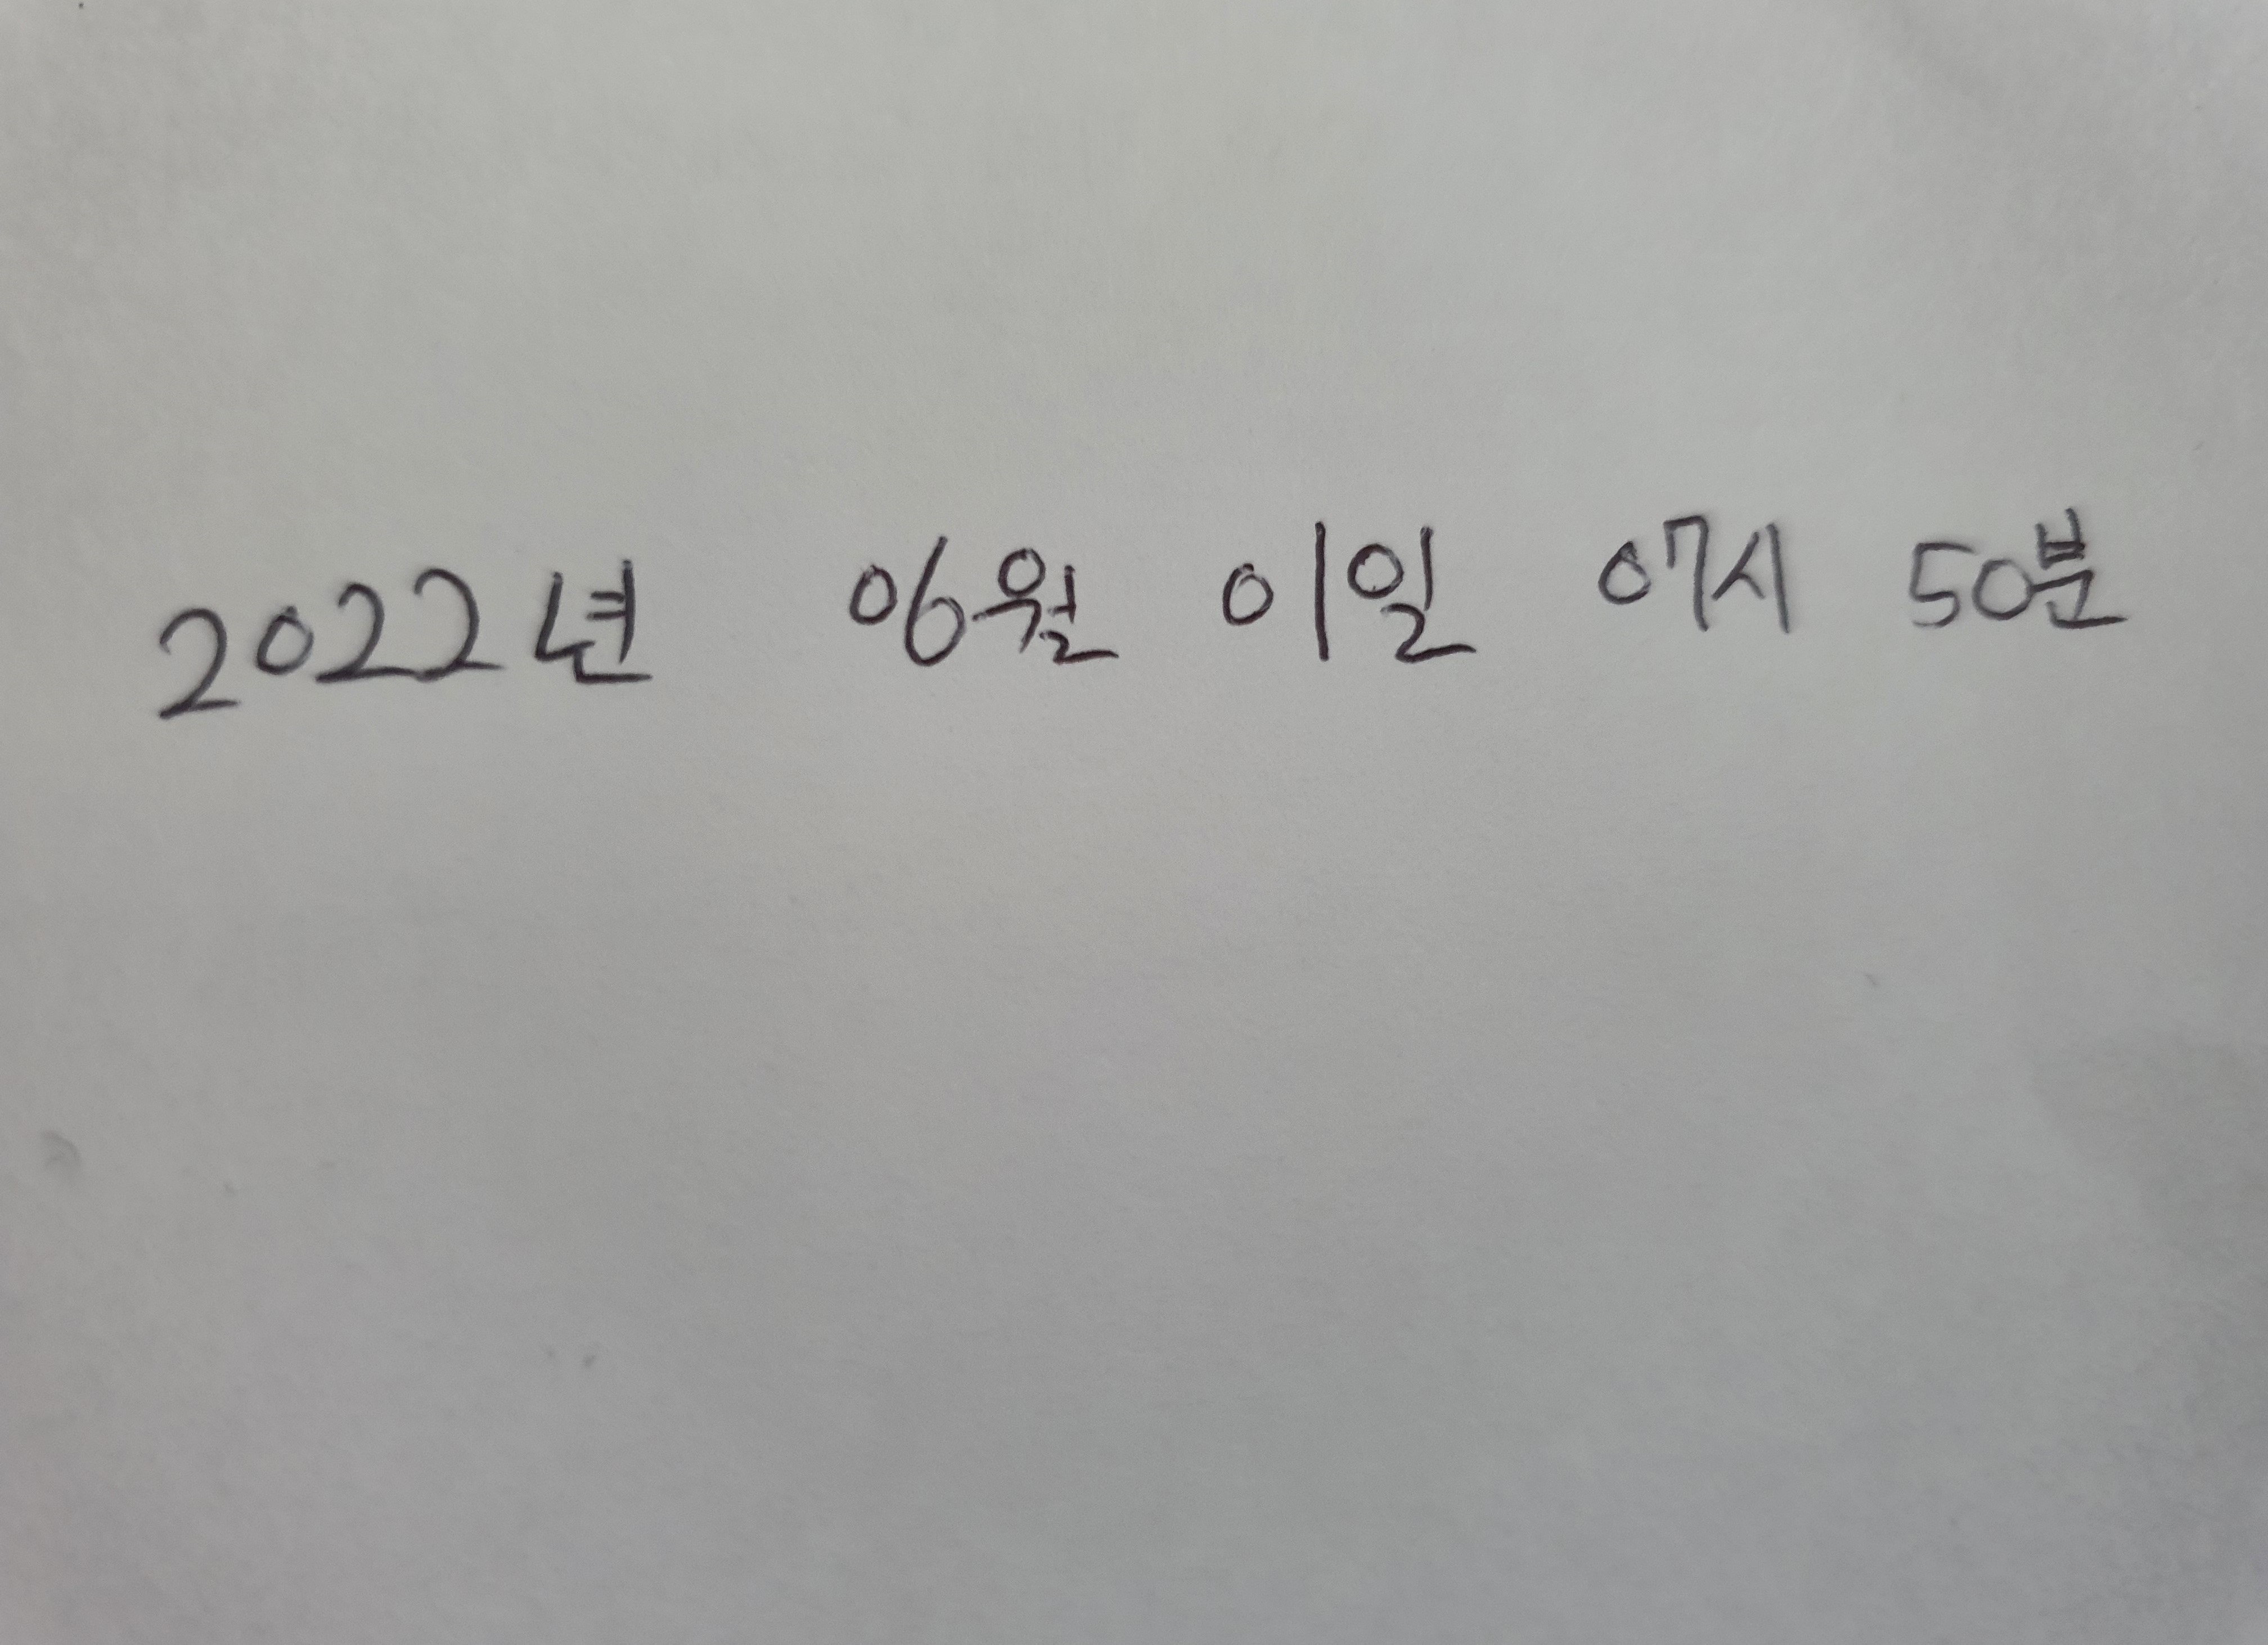 2022년 06월 01일 07시 50분